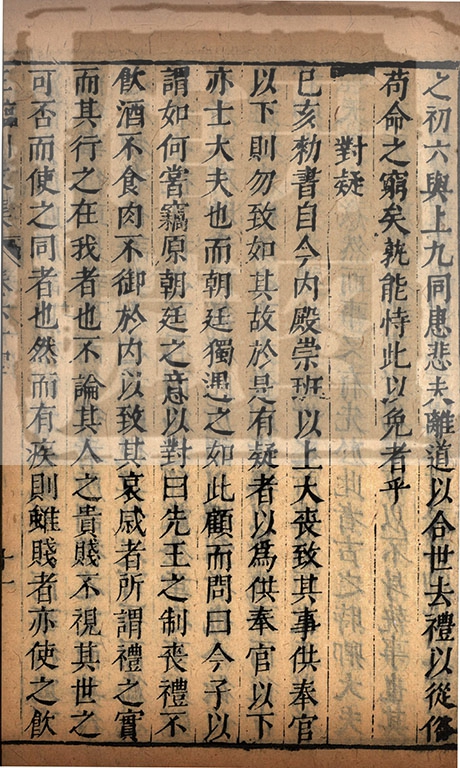 之初六與上九同患悲夫離道以合世去禮以從俗
苟命之窮矣孰能恃此以免者乎
對疑
已亥勑書自今内殿崇班以上大喪致其事供奉官
以下則勿致如其故於是有疑者以爲供奉官以下
亦士大夫也而朝廷獨遇之如此顧而問曰今子以
謂如何嘗竊原朝廷之意以對曰先王之制喪禮不
飲酒不食肉不御於内以致其哀戚者所謂禮之實
而其行之在我者也不論其人之貴賤不視其世之
可否而使之同者也然而有疾則雖賤者亦使之飲